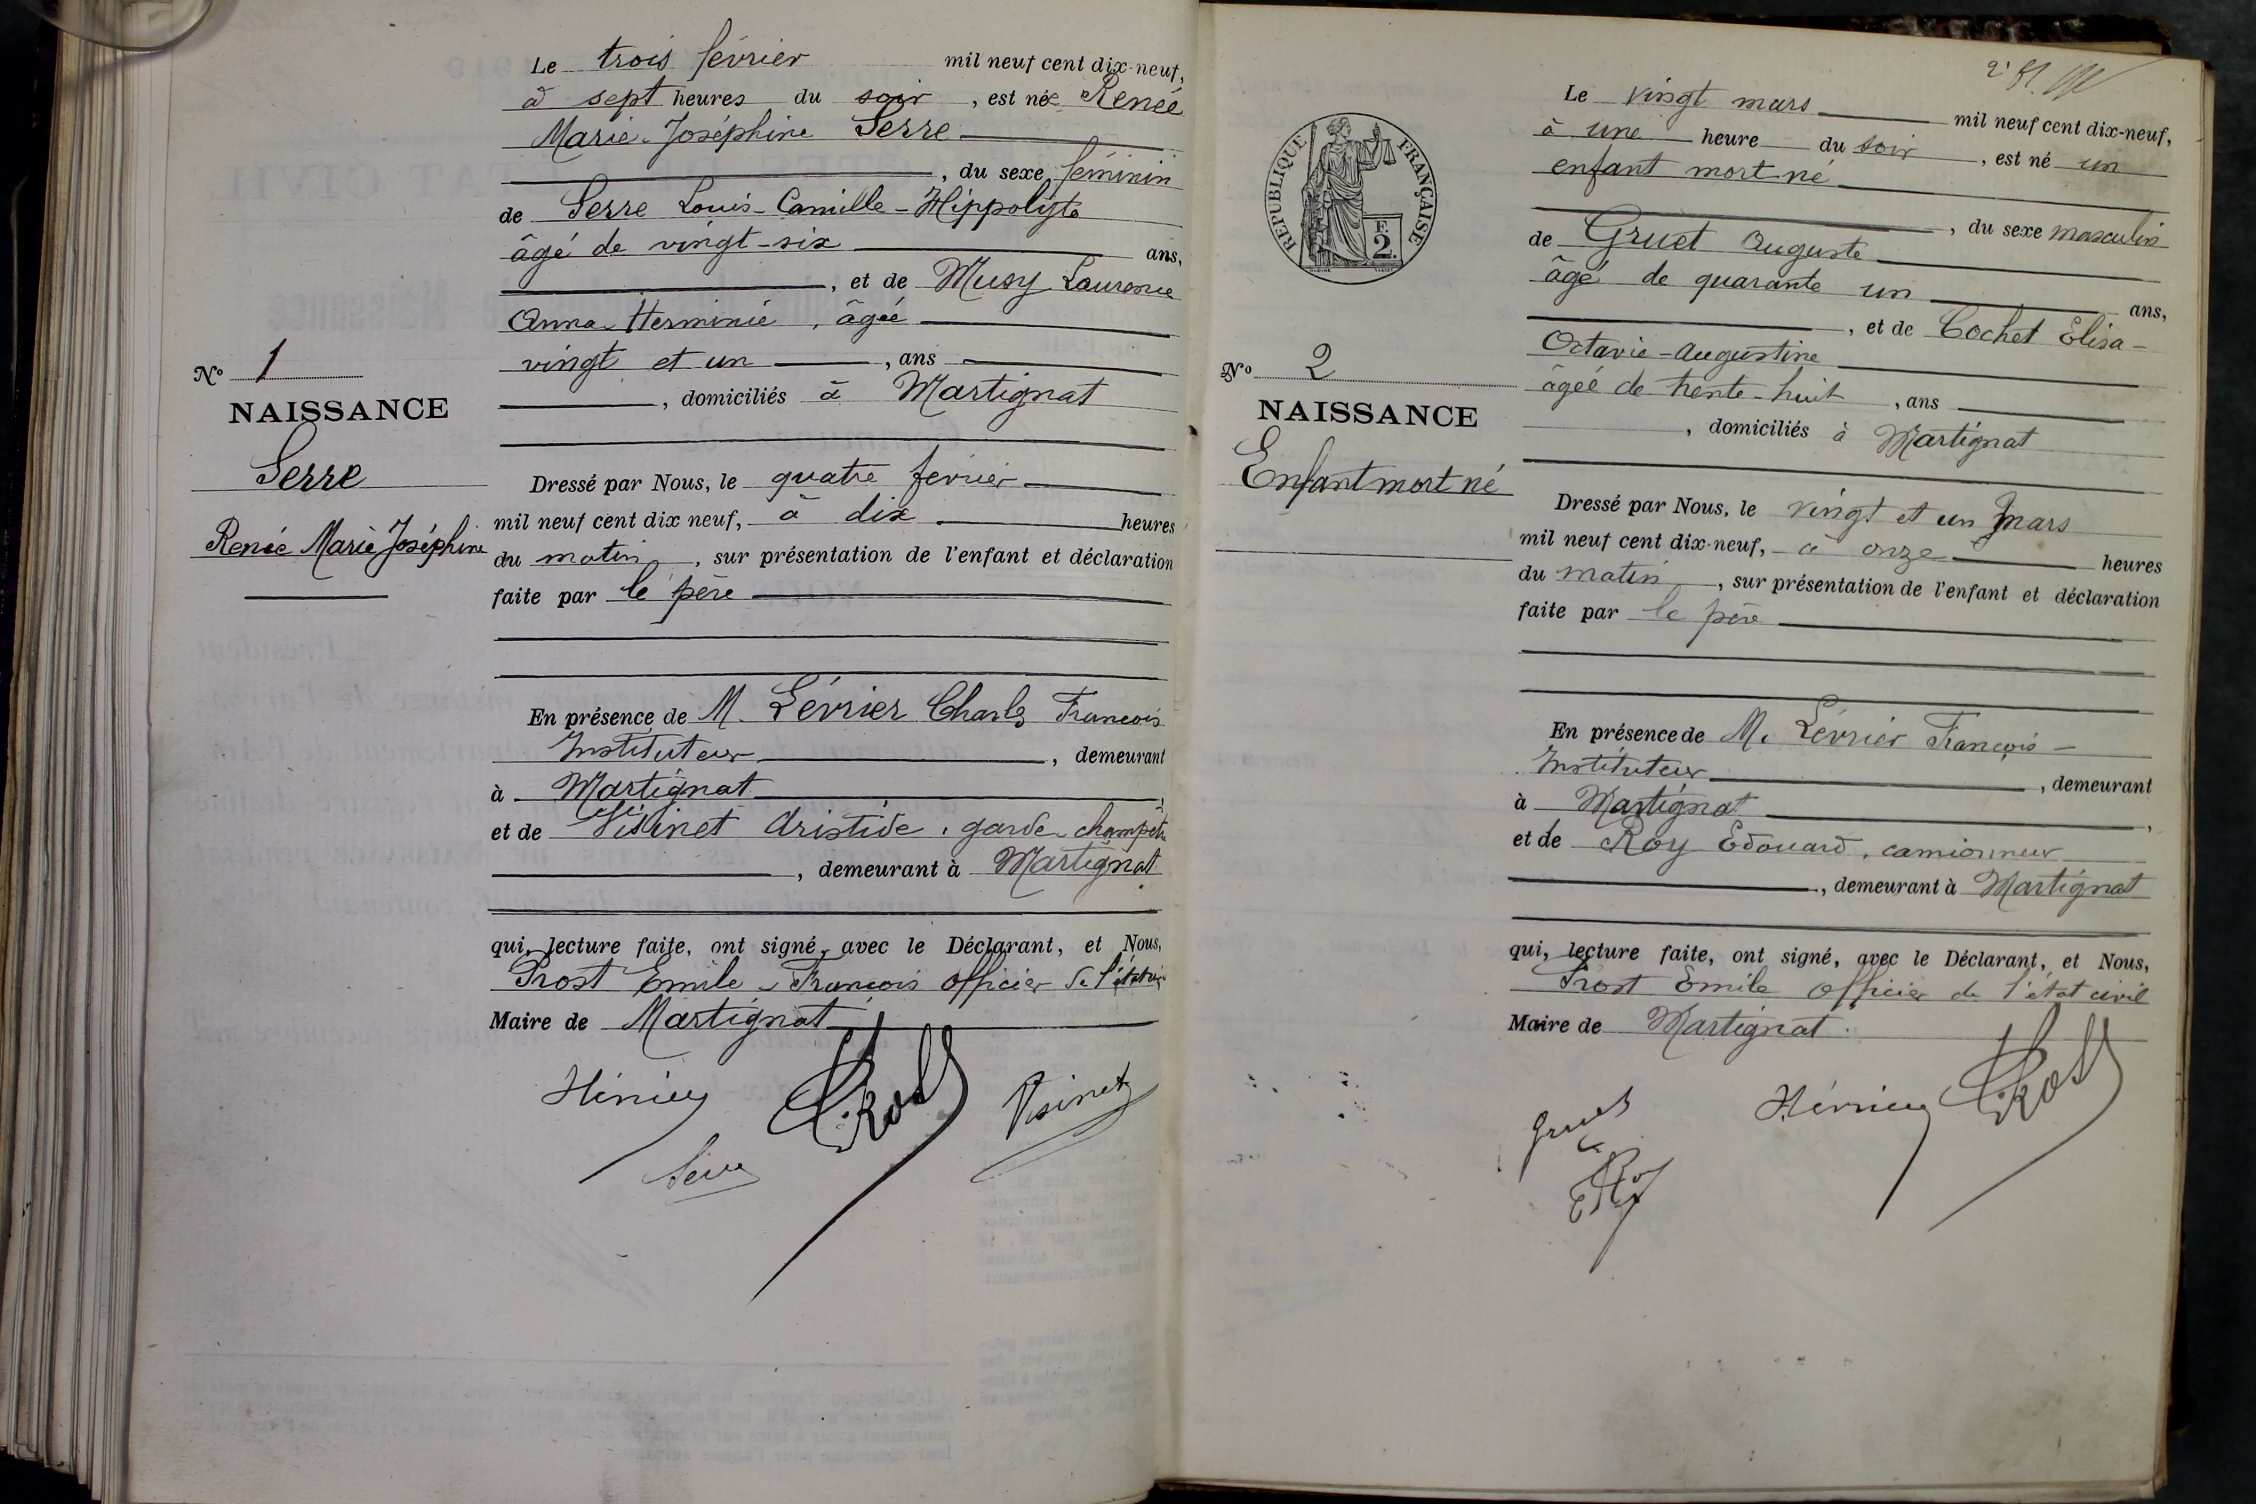 Le trois février mil neuf cent dix-neuf,
à sept heures du soir, est née Renée
Marie-Joséphine Serre
, du sexe féminin
de Serre Louis-Camille-Hippolyte
âgé de vingt-six ans,
, et de Musy Laurence
Anna-Herminie, âgée
vingt et un, ans
, domiciliés à Martignat
No 1
NAISSANCE
Serre
Renée Marie Joséphine
Dressé par Nous, le quatre fevrier
mil neuf cent dix neuf, à dix heures
du matin, sur présentation de l'enfant et déclaration
faite par le père
En présence de M. Lévrier Charles François
Instituteur, demeurant
à Martignat,
et de Visinet Aristide, garde champêtre
, demeurant à Martignat
qui, lecture faite, ont signé, avec le Déclarant, et Nous,
Prost Emile-François officier de l'état civil
Maire de Martignat
Prost
Visinet
Serre
2
Le vingt mars mil neuf cent dix-neuf,
à une heure du soir, est né un
enfant mort-né
, du sexe masculin
de Gruet Auguste
âgé de quarante un ans,
, et de Cochet Elisa-
Octavie-Augustine
âgée de trente-huit, ans
, domiciliés à Martignat
RÉPUBLIQUE FRANÇAISE
F.
2.
No 2
NAISSANCE
Enfant mort né
Dressé par Nous, le vingt et un mars
mil neuf cent dix-neuf, à onze heures
du matin, sur présentation de l'enfant et déclaration
faite par le père
En présence de M. Lévrier François-
Instituteur, demeurant
à Martignat,
et de Roy Edouard, camionneur
, demeurant à Martignat
qui, lecture faite, ont signé, avec le Déclarant, et Nous,
Prost Emile officier de l'état civil
Maire de Martignat.
Gruet
Prost
E Roy